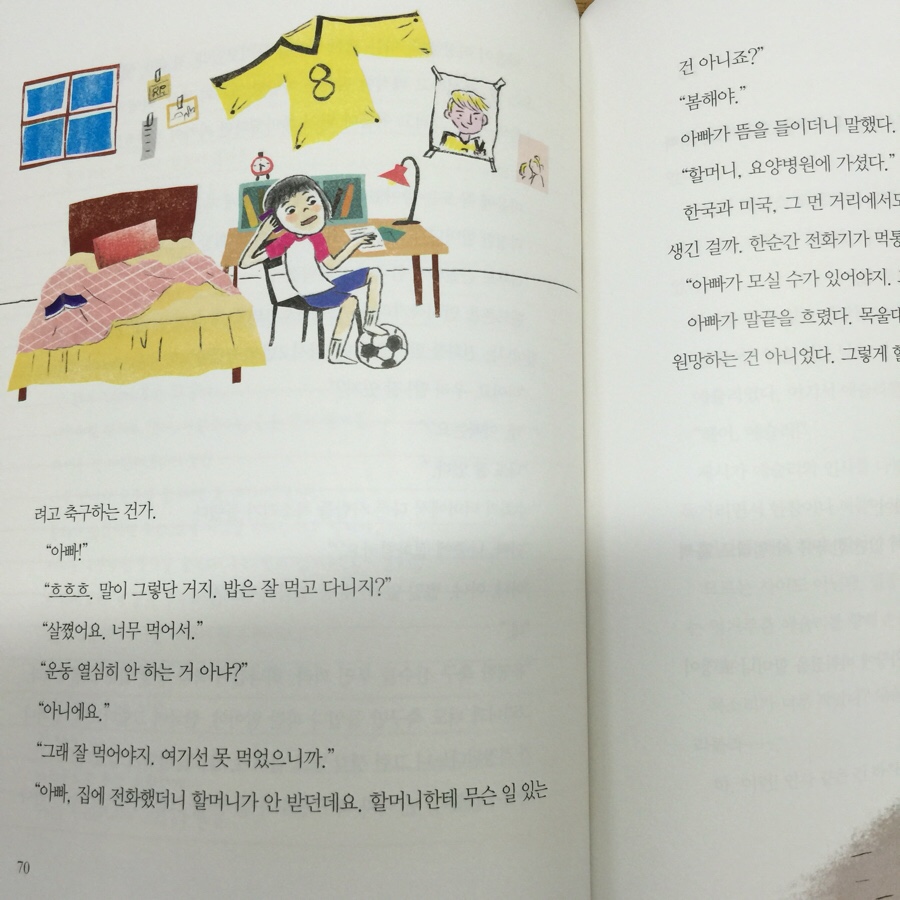 8
려고 축구하는 건가.
“아빠!”
“흐흐흐. 말이 그렇단 거지. 밥은 잘 먹고 다니지?”
“살쪘어요. 너무 먹어서.”
“운동 열심히 안 하는 거 아냐?”
“아니에요.”
“그래 잘 먹어야지. 여기선 못 먹었으니까.”
“아빠, 집에 전화했더니 할머니가 안 받던데요. 할머니한테 무슨 일 있는
70
건 아니죠?”
“봄해야.”
아빠가 뜸을 들이더니 말했다.
“할머니, 요양병원에 가셨다.”
한국과 미국, 그 먼 거리에서도
생긴 걸까. 한순간 전화기가 먹통
“아빠가 모실 수가 있어야지.
아빠가 말끝을 흐렸다. 목울대
원망하는 건 아니었다. 그렇게